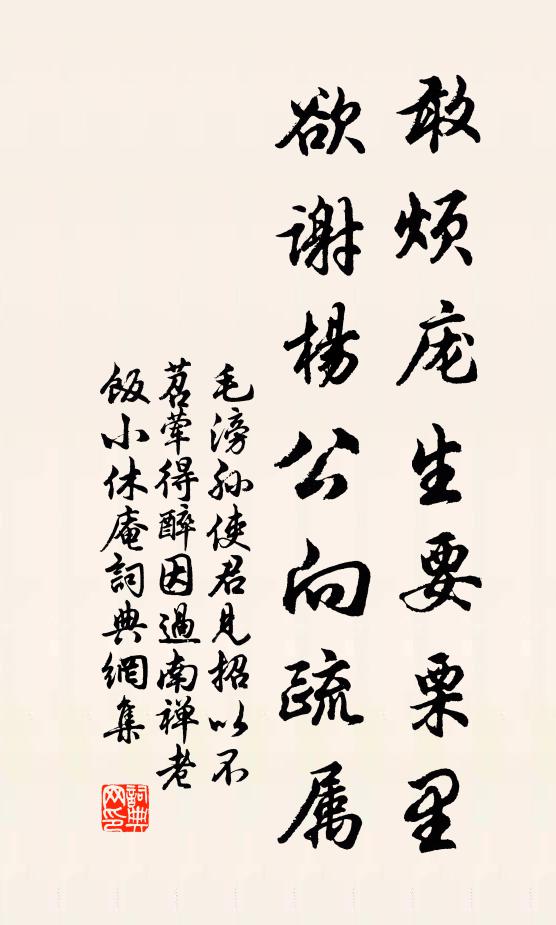 敢烦庞生要栗里
欲谢杨公向疏属
毛滂孙使君见招以不
茗荤得醉因过南禅老
饭小休庵词典网集
词典网印